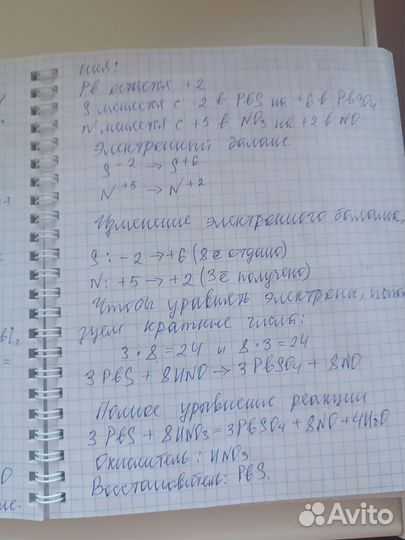 ния:
Pb остается +2
S меняется с -2 в PbS на +6 в PbSO4
N меняется с +5 в NO3 на +2 в NO
Электронный баланс
S-2 → S+6
N+5 → N+2
Изменение электронного баланса,
S: -2 → +6 (8ē отдано)
N: +5 → +2 (3ē получено)
Чтобы уравнять электроны, испо
зуем кратные числа:
3·8=24 и 8·3=24
3PbS + 8HNO → 3PbSO4 + 8NO
Полное уравнение реакции
3PbS + 8HNO3 = 3PbSO4 + 8NO + 4H2O
Окислитель: HNO3
Восстановитель: PbS.
Avito